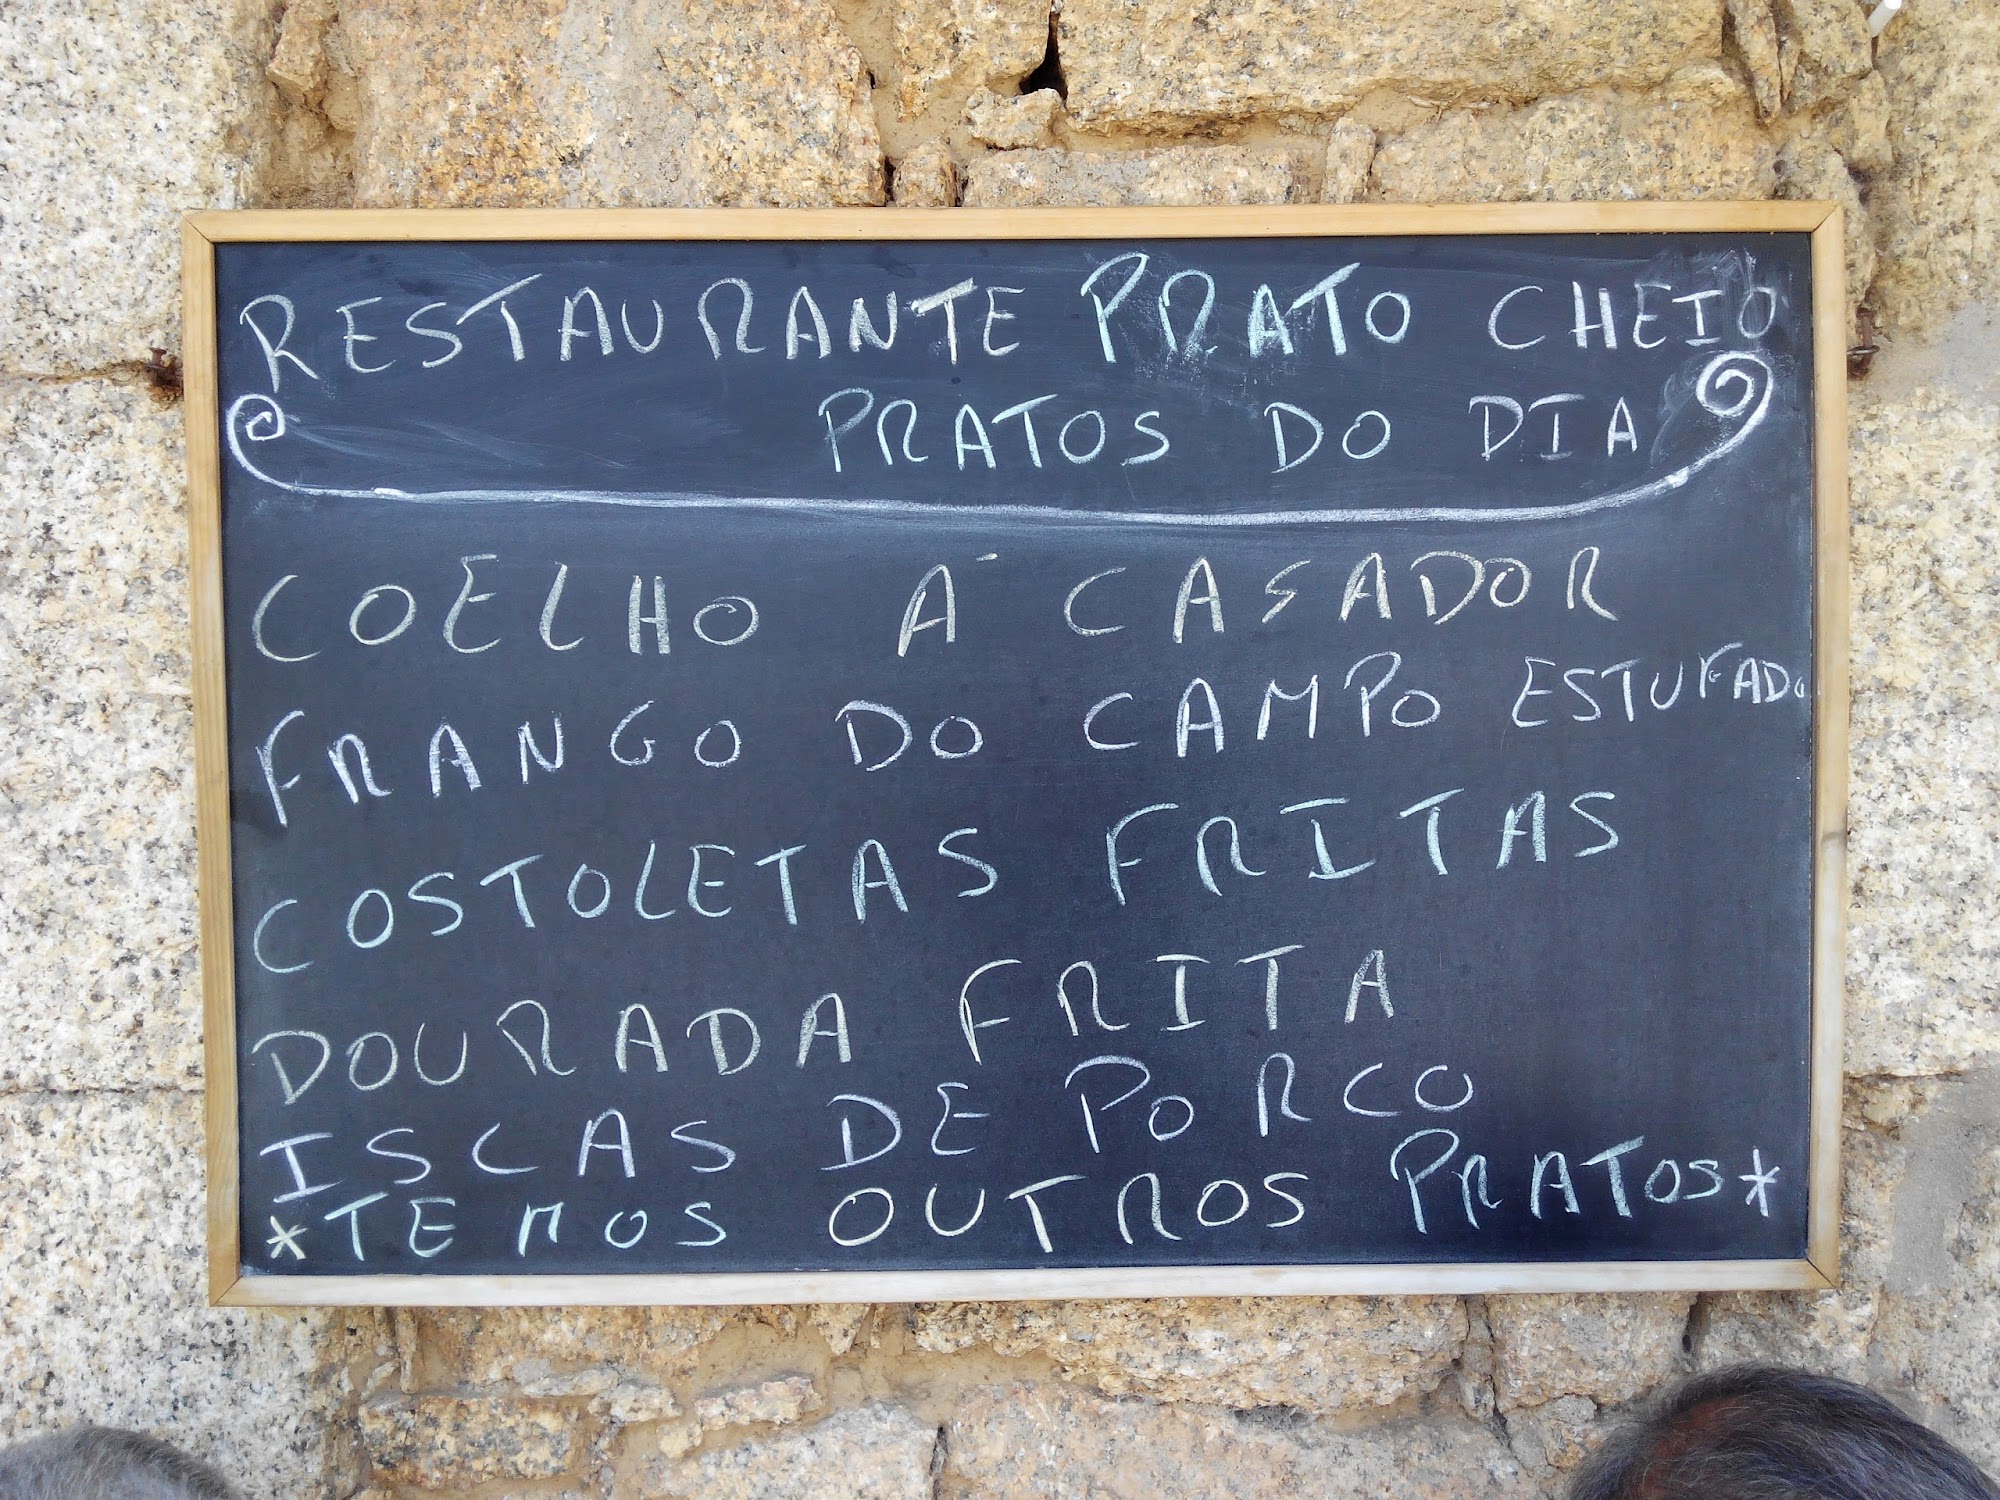 RESTAURANTE PRATO CHEIO
PRATOS DO DIA
COELHO Á CASADOR
FRANGO DO CAMPO ESTUFADO
COSTOLETAS FRITAS
DOURADA FRITA
ISCAS DE PORCO
*TEMOS OUTROS PRATOS*